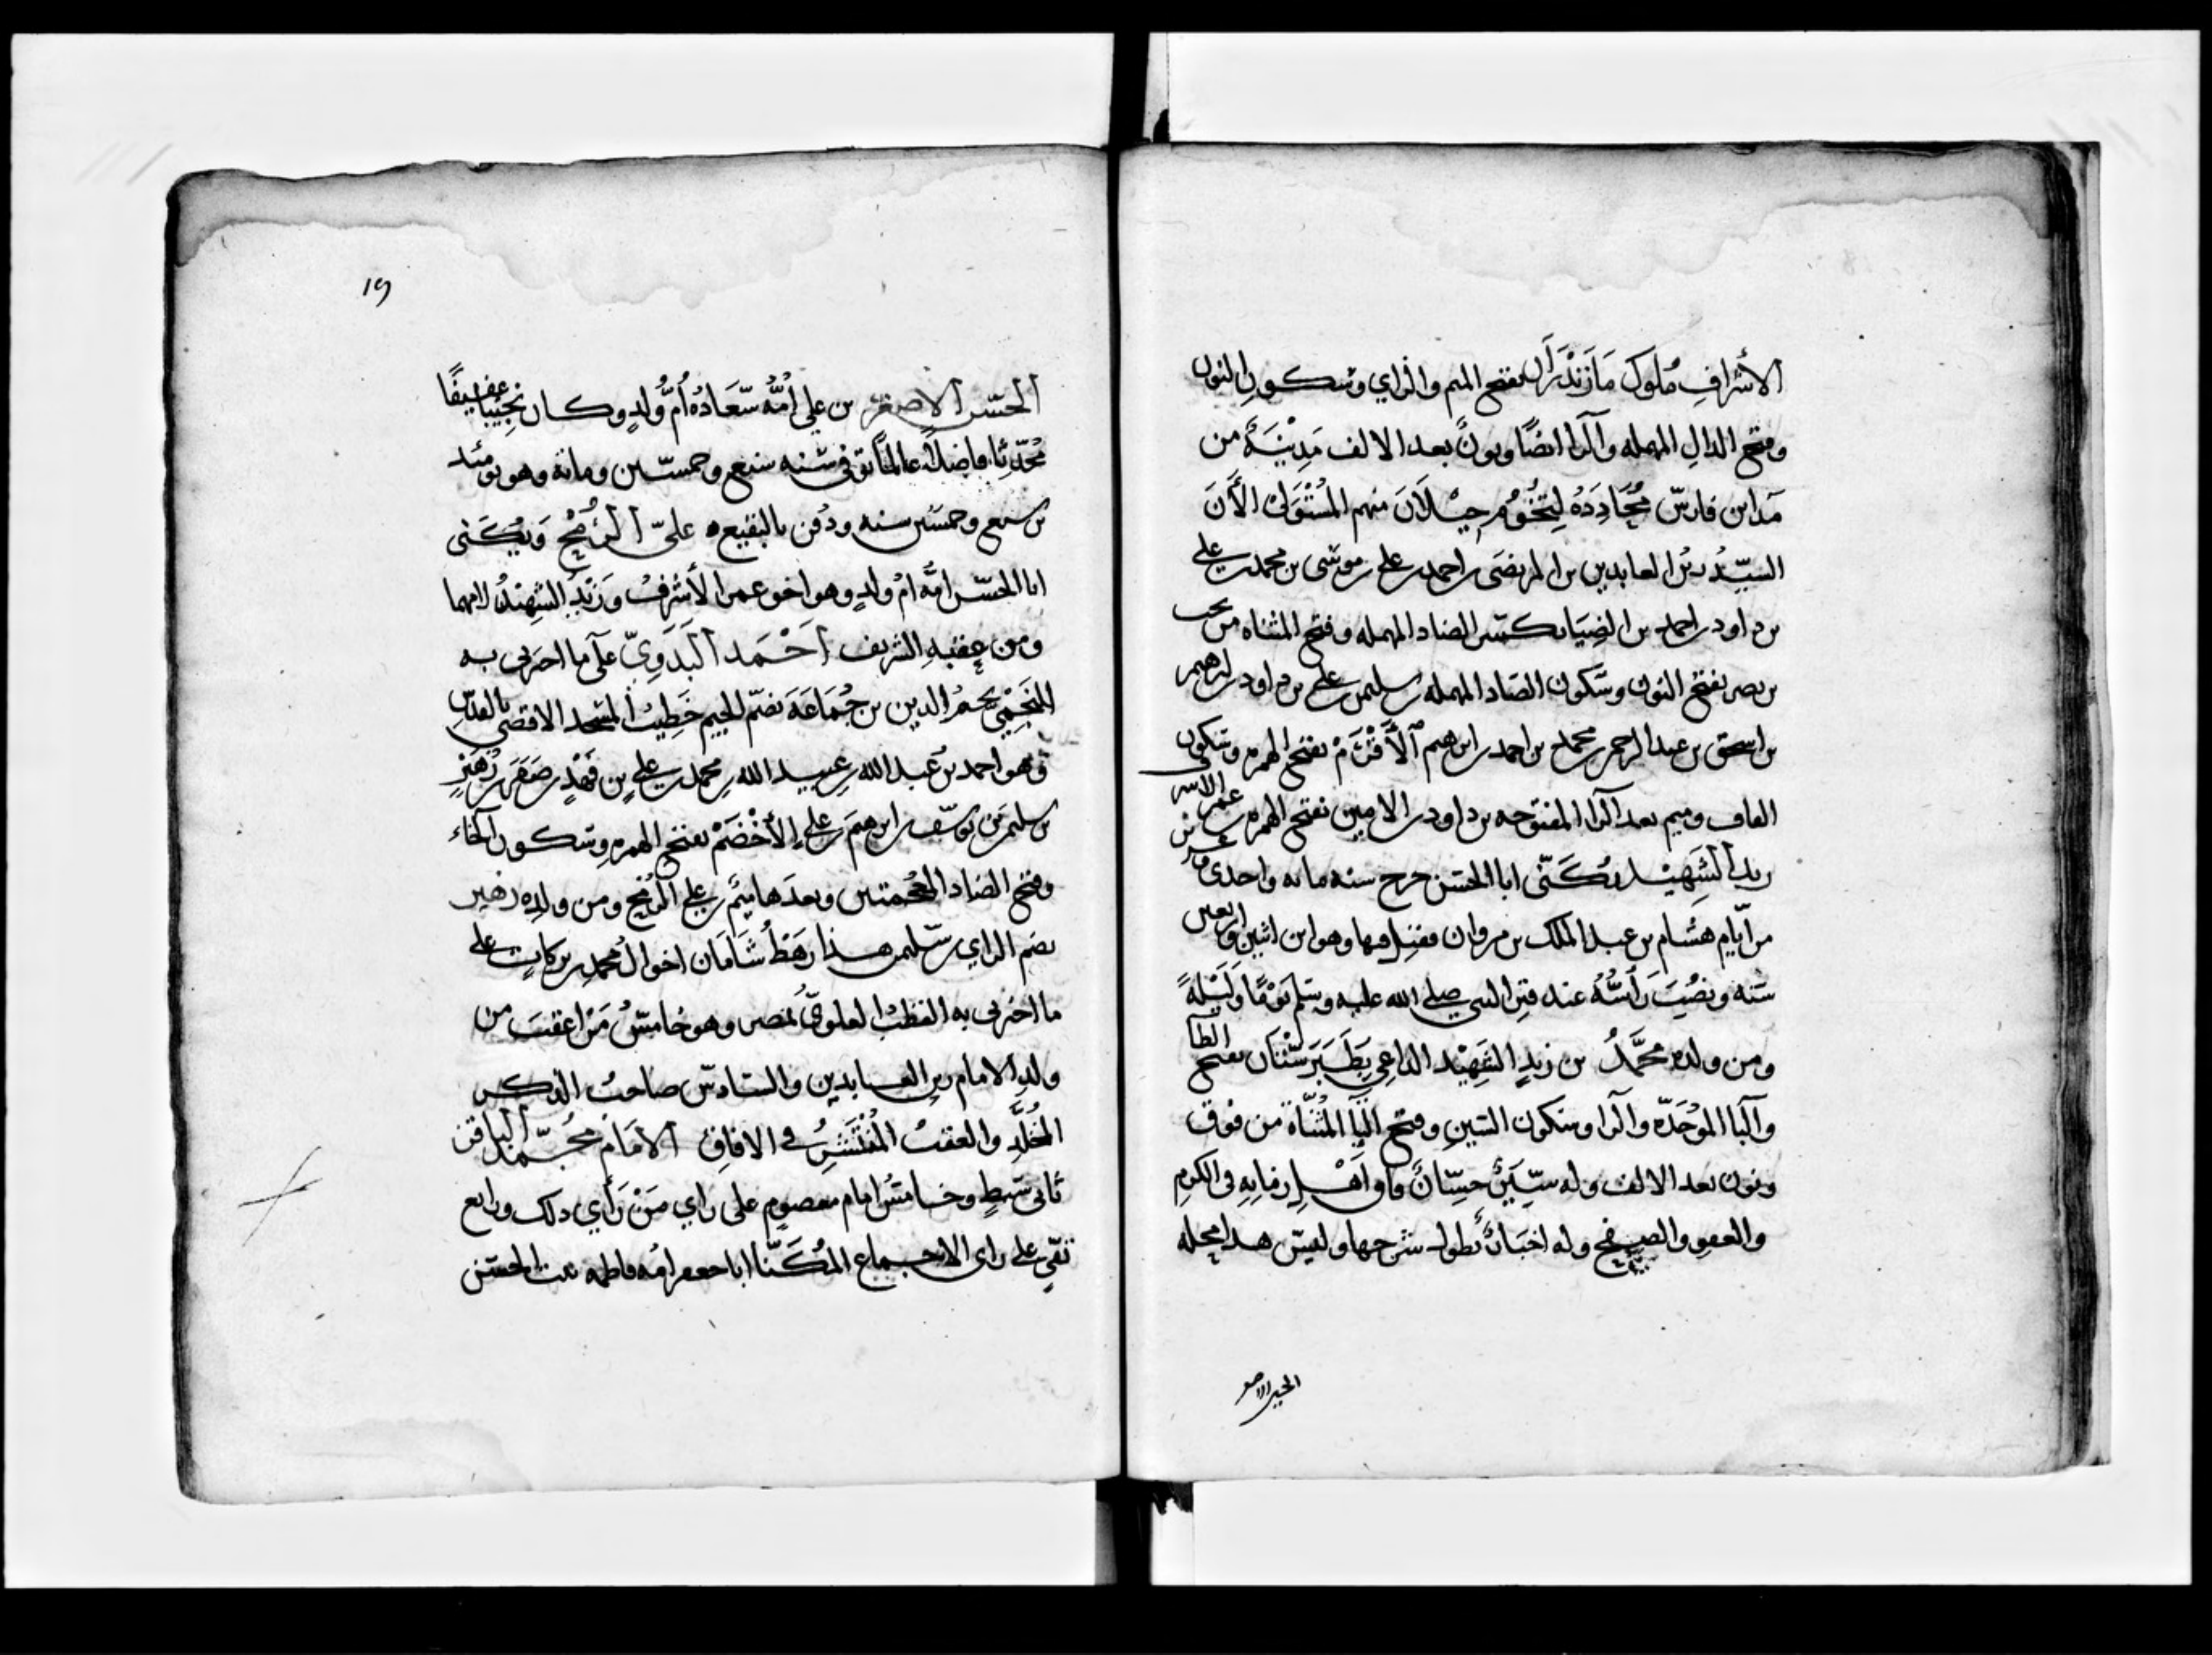 الأشراف مُلوك مَازَنْدَرَان بفتح الميم والزاي وسكون النون
وفتح الدال المهمله والرا ايضًا ونونٌ بعد الالف مَدِيْنَةٌ من
مدابن فارس مُحَادِدَةٌ لِتُخُوْمِ جِيْلَانَ منهم المُسْتَوْلِيْ الأَنَ
السيّدُ زين العابدين بن المرتضى بن احمد بن علي بن موسى بن محمد بن علي
بن داود بن احمد بن الضِيَا بكسر الضاد المهمله وفتح المثناه من تحت
بن نصر بفتح النون وسكون الصاد المهمله بن سليمن بن علي بن داود بن ابرهيم
بن اسحق بن عبد الرحمن بن محمد بن احمد بن ابرهيم الأَقْرَمْ بفتح الهمزه وسكون
القاف وميم بعد الرا المفتوحه بن داود بن الامين بفتح الهمزه
زيد الشَهِيْد يُكَنّى ابا الحسَن خرج سنه مايه واحدى
من أيام هشام بن عبد الملك بن مروان فقتل فيها وهو ابن اثنين واربعين
سَنه ونُصِبَ رَأسُهُ عند قبر النبي صلى الله عليه وسلم يَوْمًا ولَيْلةً
ومن ولده محمَّدُ بن زيدٍ الشَهِيْد الداعي بِطَبَرَسْتَان بفتح الطا
والبا الموُحَدّه والرا وسكون السّين وفتح التا المُثنّاة من فوق
ونون بعد الالف وله سِيَرٌ حِسَانٌ فاق أهْل زمانِهِ في الكرم
والعفو والصفح وله اخبَارٌ يطول شرحها وليسَ هذا محله
الحسين الاصغر
19
الحسَين الاصغر بن علي اُمُّه سَعَادُه أمُّ ولدٍ وكان نجيبًا عفيفًا
مُحَدّثًا فاضلًا عالمًا توفي سَنه سبع وخمسين ومائة وهو يومئذ
بن سبع وخمسين سنه ودُفن بالبقيع ه عليّ الـ وَيُكَنى
ابا الحسَن امُّه امُ ولدٍ وهو اخو عمر الأشرف وَزَيْدِ الشهيْدُ لامهما
ومن عقبهِ الشريف أَحْمَد البَدَوِيّ على ما اخبرني به
المنَجِّمِي نجمُ الدين بن جُمَاعَةَ بضمّ الجيم خَطيبُ المسْجد الاقصى بالقدس
وهو احمد بن عَبد الله بن عبيد الله بن محمد بن علي بن فَهْدٍ بن صَقرَ بن زُهَيْرٍ
بن سليمن بن يوسف بن ابرهيمَ بن علي الأَخْضَمْ بفتح الهمزه وسكون الخاء
وفتح الضاد المعجمتين وبعدَها ميمٌ بن علي ومن ولدِه زهير
بضم الزاي بن سليمن هذا رَهْطُ شَامَان اخوالُ محمد بن بركاتٍ على
ما اخبرني به القطبُ العلويُّ بمصر وهو خامسُ مَنْ اعقبَ من
ولد الامام زين العابدين والسّادسُ صَاحبُ الذكر
المُخلَّدِ والعقبُ المُنْتَشِرُ في الافاقِ الامَام مُحمّد البَاقر
ثاني سِبطٍ وخامسُ امام معصومٍ على راي مَنْ رَأي ذلك ورابع
تقي على راى الاجماع المُكَنّا ابا جعفر امُه فاطمه بنت الحسَن